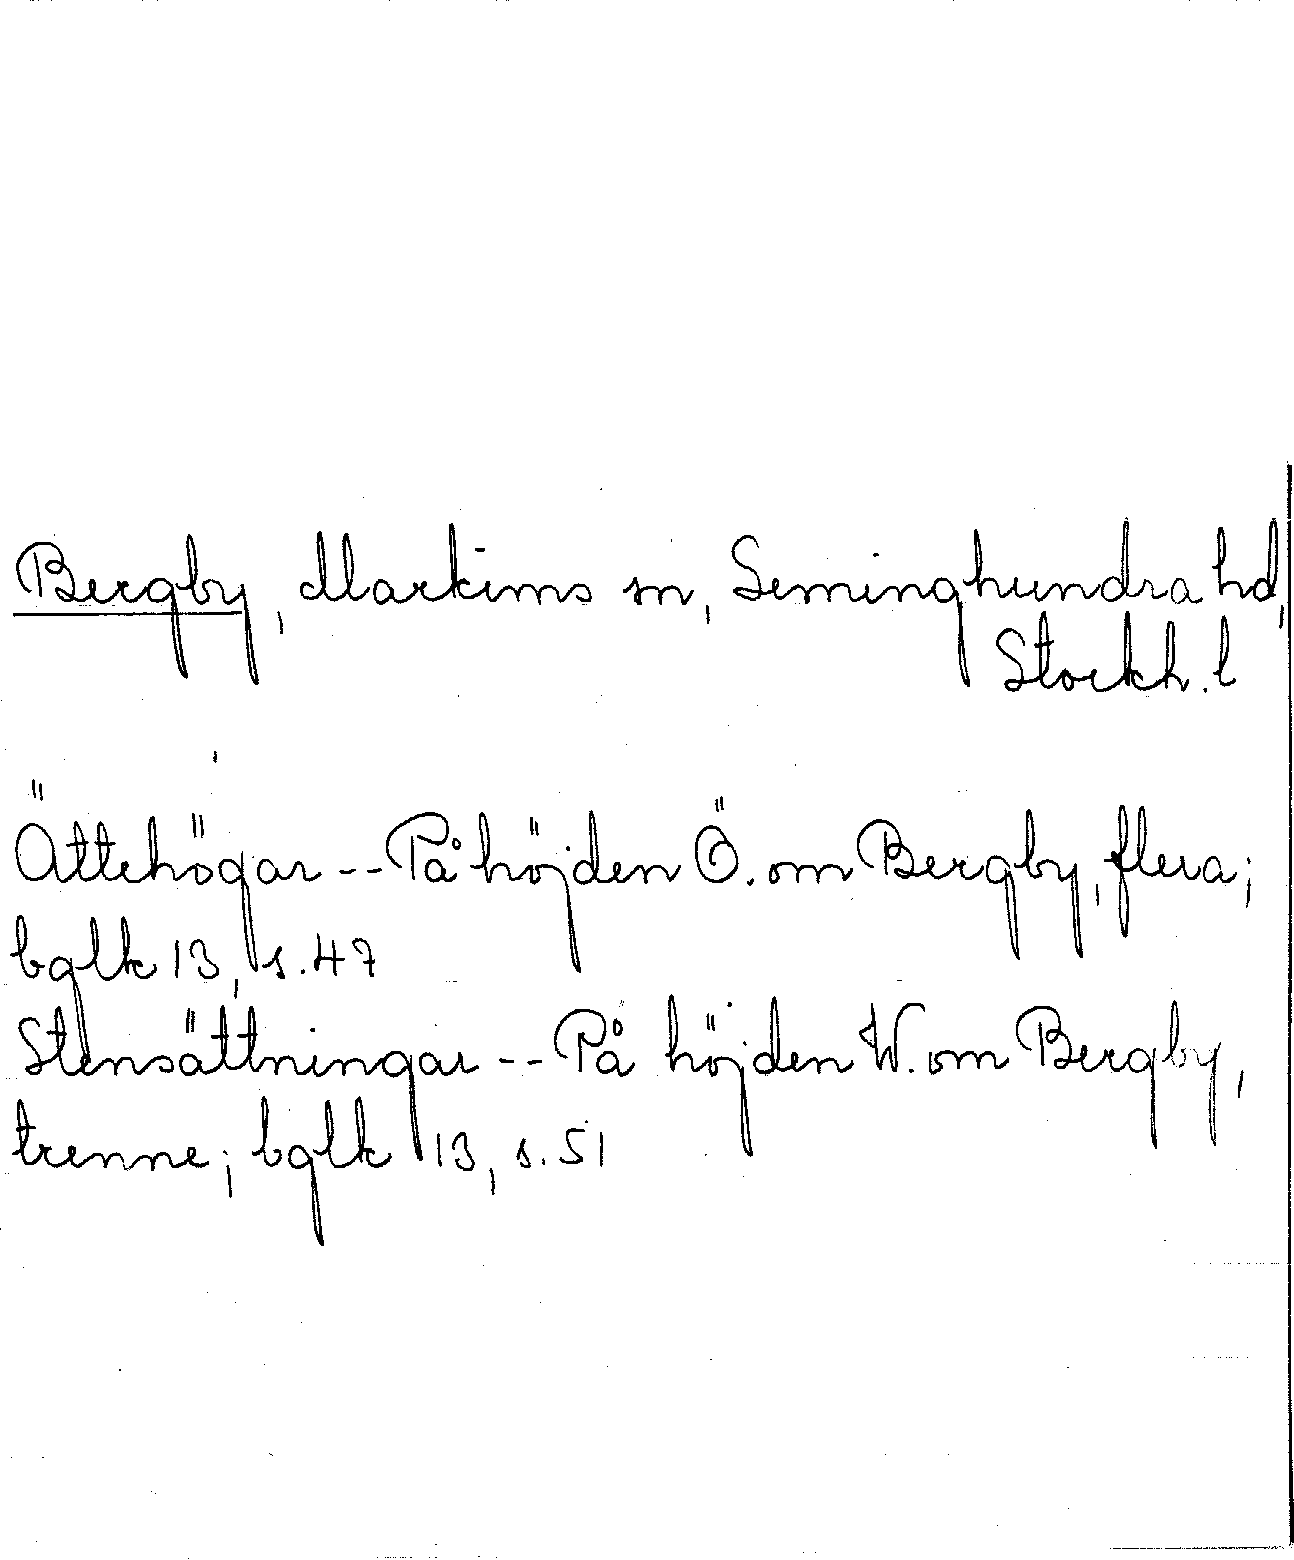 Bergby, Markims sn, Seminghundra hd,
Stockh. l
Ättehögar -- På höjden Ö. om Bergby, flera;
bglk 13, s. 47
Stensättningar -- På höjden W. om Bergby,
trenne; bglk 13, s. 51